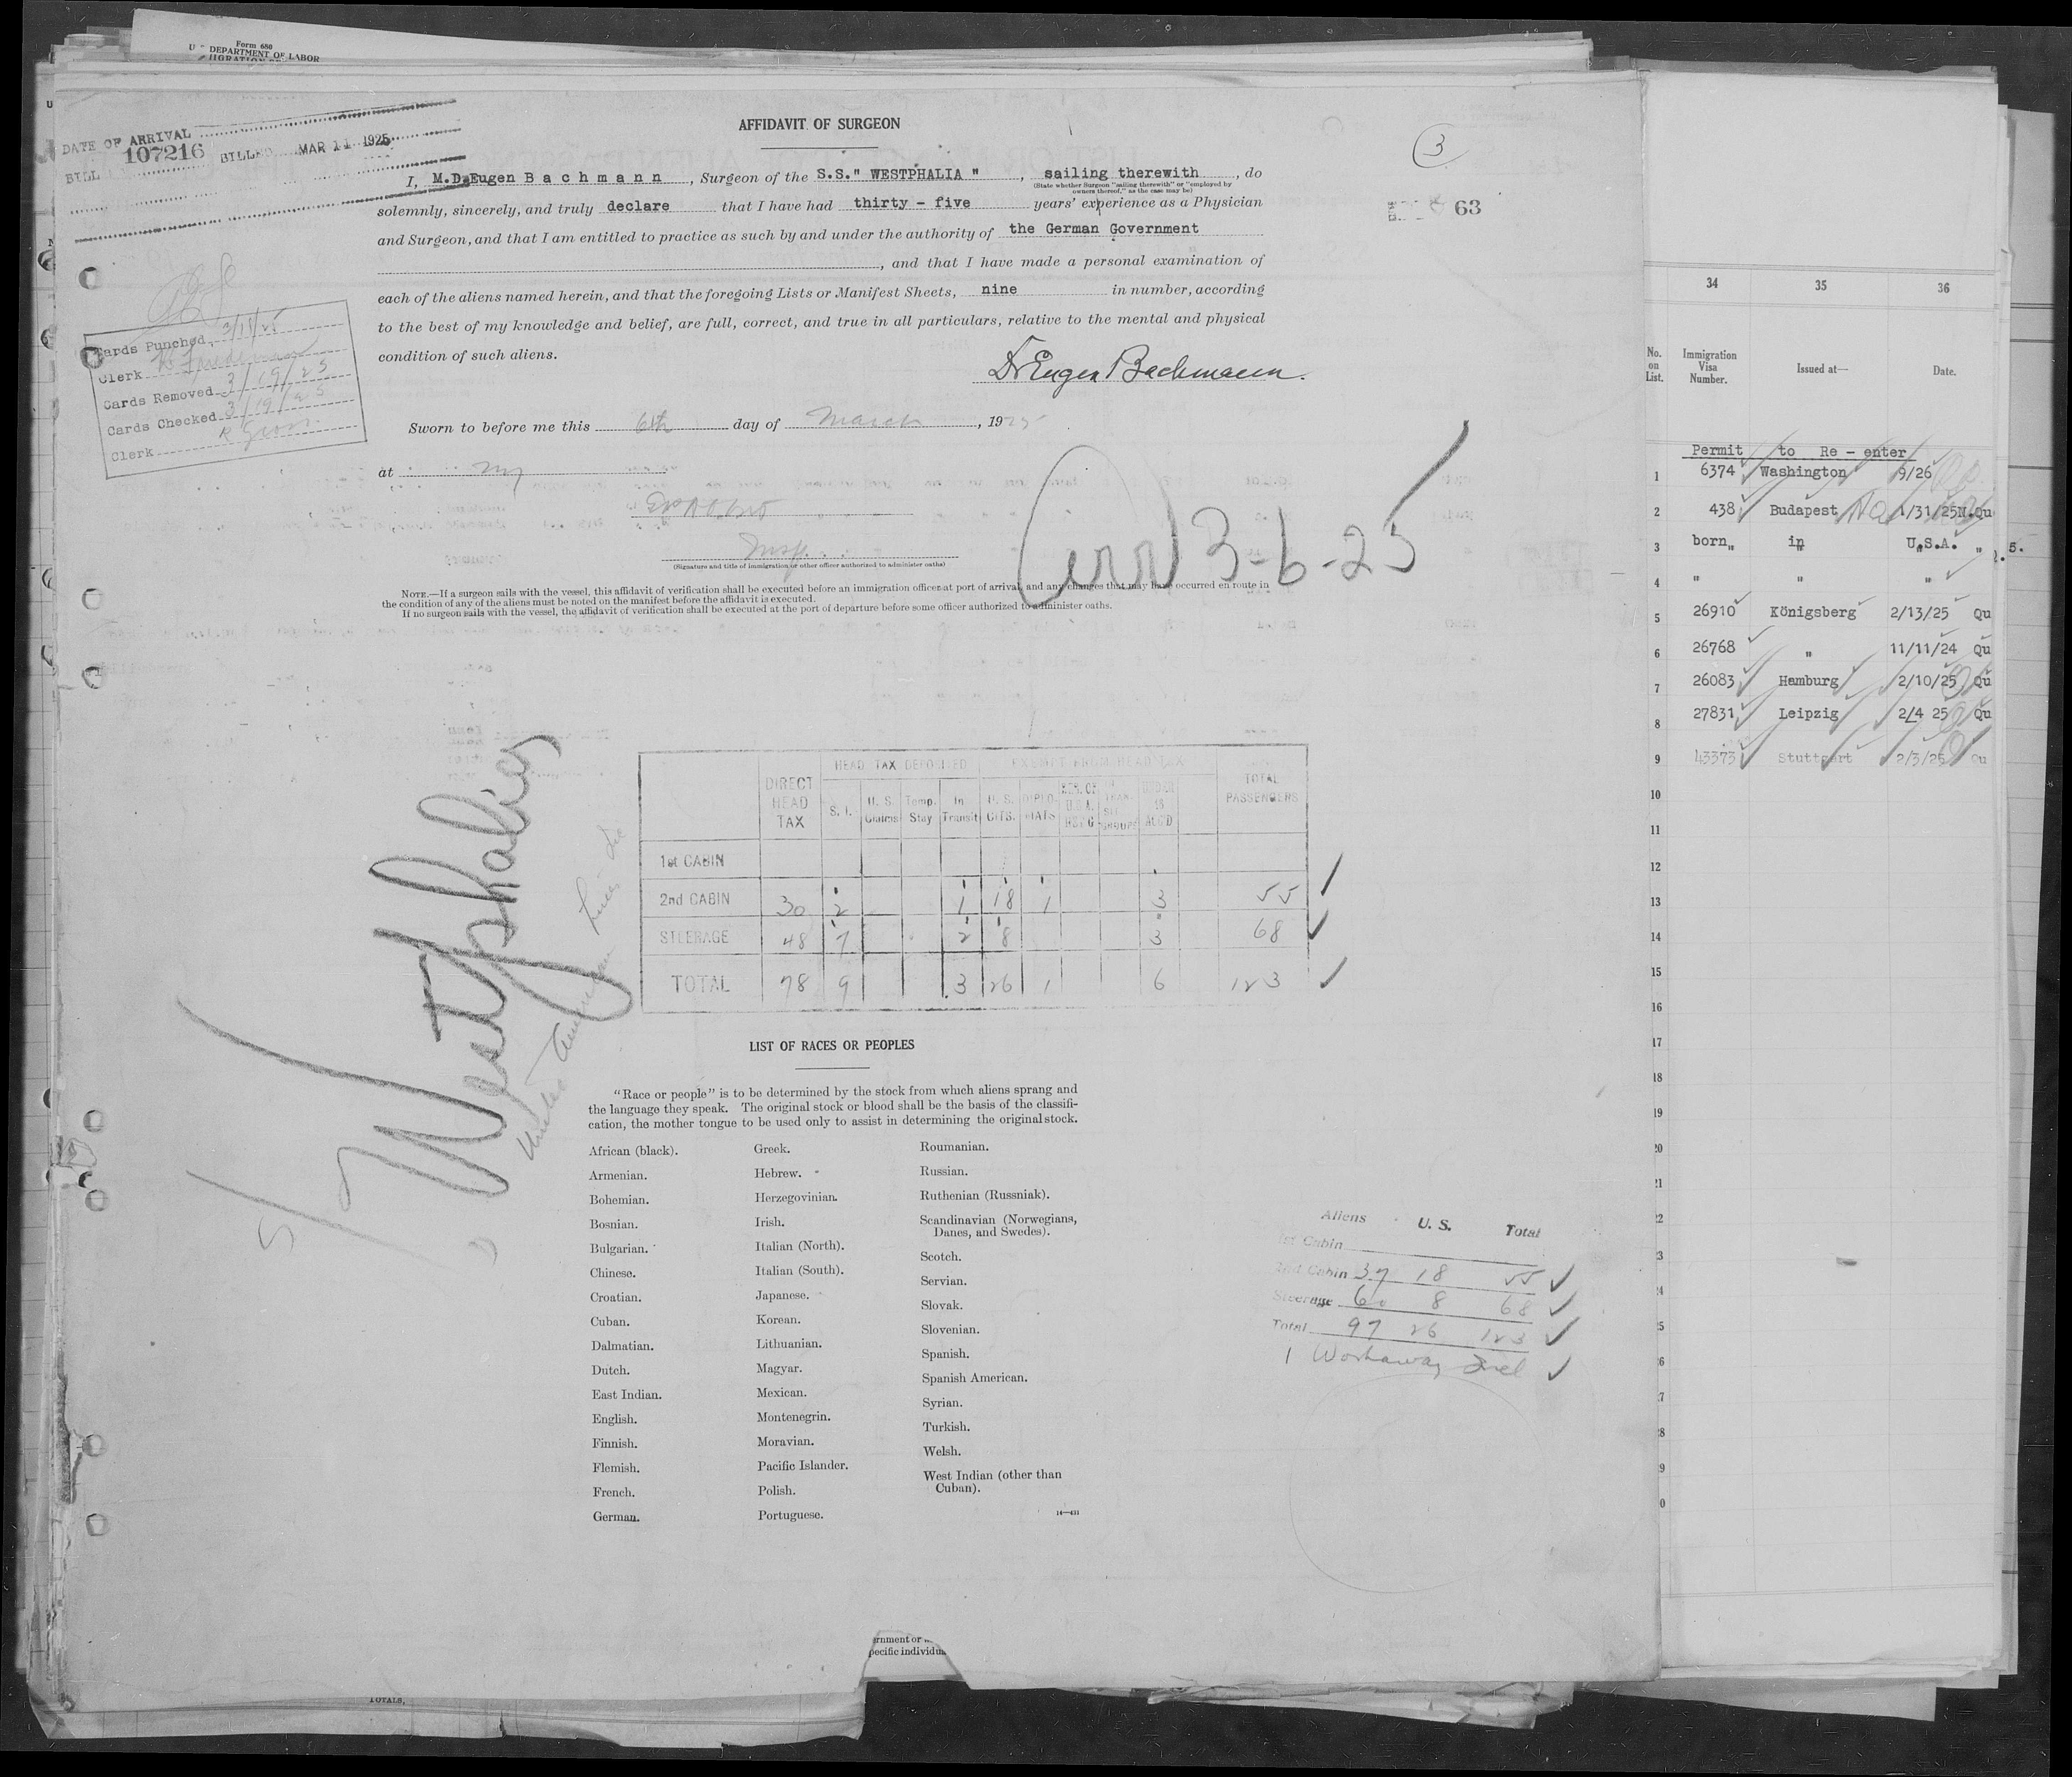 Form 680
U. S. DEPARTMENT OF LABOR
DATE OF ARRIVAL
107216 BILLED MAR 11 1925
AFFIDAVIT OF SURGEON
3
63
I, M.D. Eugen Bachmann, Surgeon of the S.S." WESTPHALIA ", sailing therewith, do
(State whether Surgeon "sailing therewith" or "employed by
owners thereof," as the case may be)
solemnly, sincerely, and truly declare that I have had thirty - five years' experience as a Physician
and Surgeon, and that I am entitled to practice as such by and under the authority of the German Government
, and that I have made a personal examination of
each of the aliens named herein, and that the foregoing Lists or Manifest Sheets, nine in number, according
to the best of my knowledge and belief, are full, correct, and true in all particulars, relative to the mental and physical
condition of such aliens.
Dr Eugen Bachmann.
Cards Punched
Clerk
Cards Removed 3/19/25
Cards Checked 3/19/25
Clerk
Sworn to before me this 6th day of March, 1925
at NY
Insp.
(Signature and title of immigration or other officer authorized to administer oaths)
Arr 3-6-25
NOTE.—If a surgeon sails with the vessel, this affidavit of verification shall be executed before an immigration officer at port of arrival, and any changes that may have occurred en route in
the condition of any of the aliens must be noted on the manifest before the affidavit is executed.
If no surgeon sails with the vessel, the affidavit of verification shall be executed at the port of departure before some officer authorized to administer oaths.
Westphalia
United American Lines
DIRECT HEAD TAX HEAD TAX DEPOSITED EXEMPT FROM HEAD TAX TOTAL PASSENGERS
S. I. U. S. Claims Temp. Stay In Transit U. S. CITS. DIPLOMATS
1st CABIN
2nd CABIN 30 2 1 18 1 3 55
STEERAGE 48 7 2 8 3 68
TOTAL 78 9 3 26 1 6 123
LIST OF RACES OR PEOPLES
"Race or people" is to be determined by the stock from which aliens sprang and
the language they speak. The original stock or blood shall be the basis of the classifi-
cation, the mother tongue to be used only to assist in determining the original stock.
African (black).
Armenian.
Bohemian.
Bosnian.
Bulgarian.
Chinese.
Croatian.
Cuban.
Dalmatian.
Dutch.
East Indian.
English.
Finnish.
Flemish.
French.
German.
Greek.
Hebrew.
Herzegovinian.
Irish.
Italian (North).
Italian (South).
Japanese.
Korean.
Lithuanian.
Magyar.
Mexican.
Montenegrin.
Moravian.
Pacific Islander.
Polish.
Portuguese.
Roumanian.
Russian.
Ruthenian (Russniak).
Scandinavian (Norwegians,
Danes, and Swedes).
Scotch.
Servian.
Slovak.
Slovenian.
Spanish.
Spanish American.
Syrian.
Turkish.
Welsh.
West Indian (other than
Cuban).
14—431
Aliens U. S. Total
1st Cabin
2nd Cabin 37 18 55
Steerage 60 8 68
Total 97 26 123
1 Workaway Incl
34 35 36
No. on List. Immigration Visa Number. Issued at— Date.
Permit to Re - enter
1 6374 Washington 9/26
2 438 Budapest 1/31/25 N.Qu
3 born in U.S.A.
4 " " "
5 26910 Königsberg 2/13/25 Qu
6 26768 " 11/11/24 Qu
7 26083 Hamburg 2/10/25 Qu
8 27831 Leipzig 2/4 25 Qu
9 43373 Stuttgart 2/3/25 Qu
10
11
12
13
14
15
16
17
18
19
20
21
22
23
24
25
26
27
28
29
30
TOTALS,